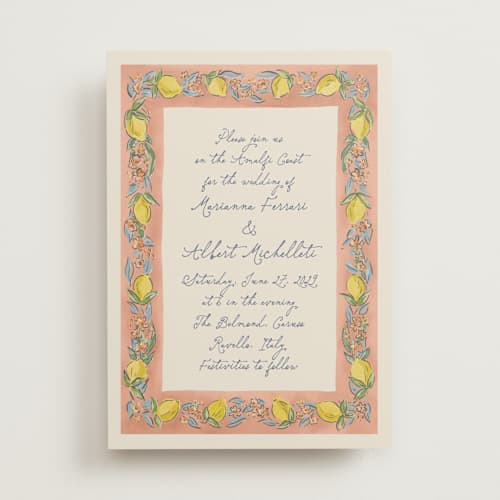 Please join us
on the Amalfi Coast
for the wedding of
Marianna Ferrari
&
Albert Michelleti
Saturday, June 27, 2029
at 6 in the evening
The Belmond, Caruso
Ravello, Italy,
Festivities to follow